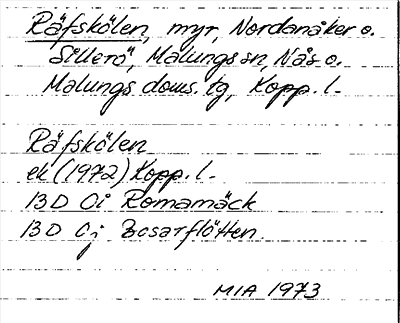 Räfskölen, myr, Nordanåker o.
Sillerö, Malungs sn, Nås o.
Malungs doms. tg, Kopp. l.
Räfskölen
ek (1972) Kopp. l.
13D 0i Romamäck
13D 0j Bosarflötten.
MIA 1973